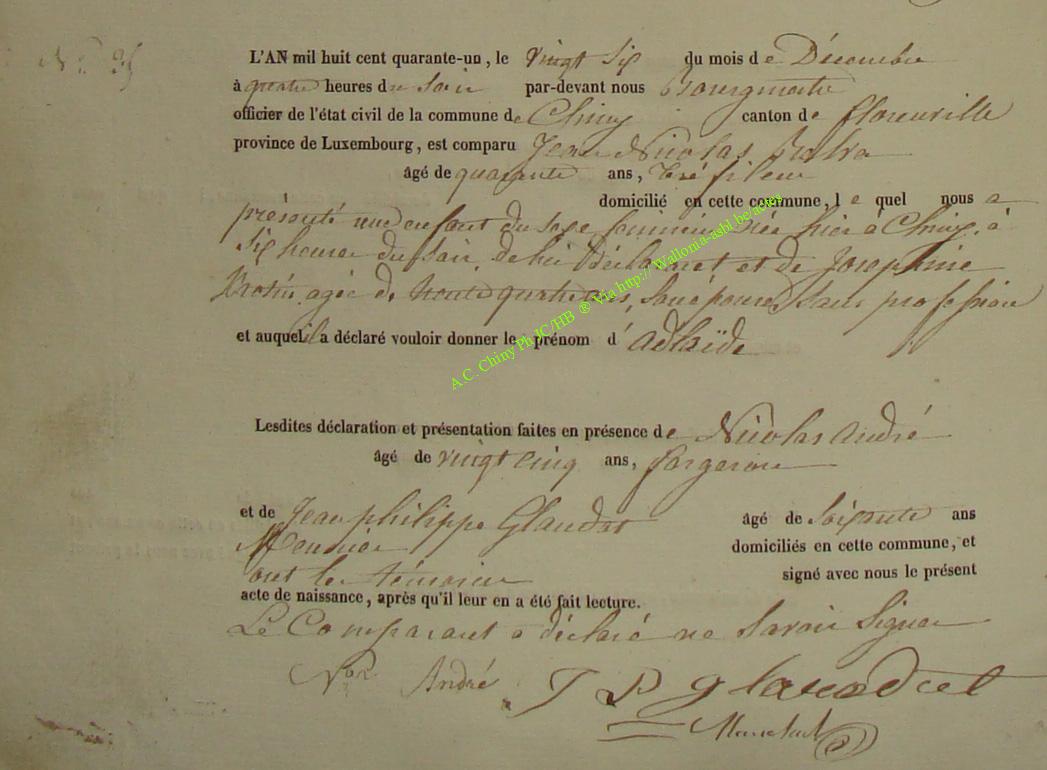 N° 35
L'AN mil huit cent quarante-un, le vingt six du mois de Décembre
à quatre heures du soir par-devant nous Bourgmestre
officier de l'état civil de la commune de Chiny canton de florenville
province de Luxembourg, est comparu Jean Nicolas
âgé de quarante ans, Tréfileur
domicilié en cette commune, le quel nous a
présenté une enfant du sexe feminin née hier à Chiny, à
six heures du soir, de lui Déclarant et de Josephine
agée de trente quatre ans, son épouse, sans profession
et auquel il a déclaré vouloir donner le prénom d'adelaïde
Lesdites déclaration et présentation faites en présence de Nicolas André
âgé de vingt cinq ans, forgeron
et de Jean philippe Glaudot âgé de soixante ans
domiciliés en cette commune, et
ont les témoins signé avec nous le présent
acte de naissance, après qu'il leur en a été fait lecture.
Le Comparant a déclaré ne savoir signer
André J P glaudot
A.C. Chiny Ph JC/HB ® Via http://Wallonia-asbl.be/actes